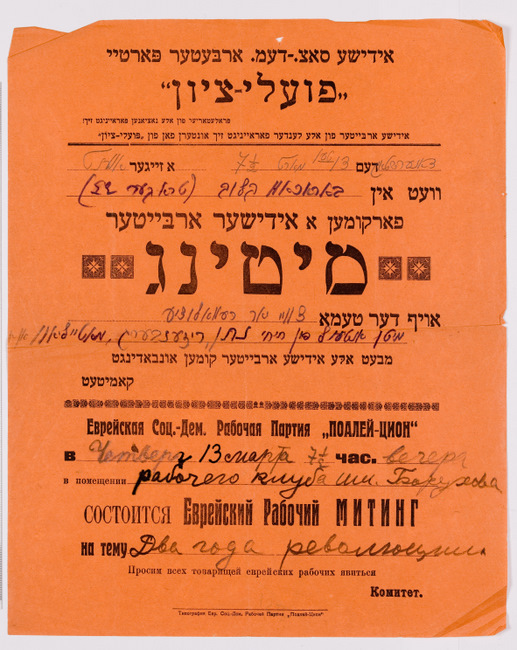 אידישע סאצ.-דעמ. ארבעטער פארטיי
„פועלי-ציון“
פראלעטאריער פון אלע נאציאנען פאראייניגט זיך!
אידישע ארבייטער פון אלע לענדער פאראייניגט זיך אונטערן פאן פון „פועלי-ציון“
דאנערשטאג דעם 13טן מערץ 7½ א זייגער
וועט אין באראכאוו קלוב
פארקומען א אידישער ארבייטער
מיטינג
אויף דער טעמא צוויי יאר רעוואלוציע
מיטן אנטייל פון חיים
מבעט אלע אידישע ארבייטער קומען אונבאדינגט
קאמיטעט
Еврейская Соц.-Дем. Рабочая Партия „ПОАЛЕЙ-ЦИОН“
в Четверг 13 марта 7½ час. вечера
в помещении рабочего клуба им. Борухова
СОСТОИТСЯ Еврейский Рабочий МИТИНГ
на тему Два года революции
Просим всех товарищей еврейских рабочих явиться
Комитет.
Типография Евр. Соц.-Дем. Рабочей Партии „Поалей-Цион“